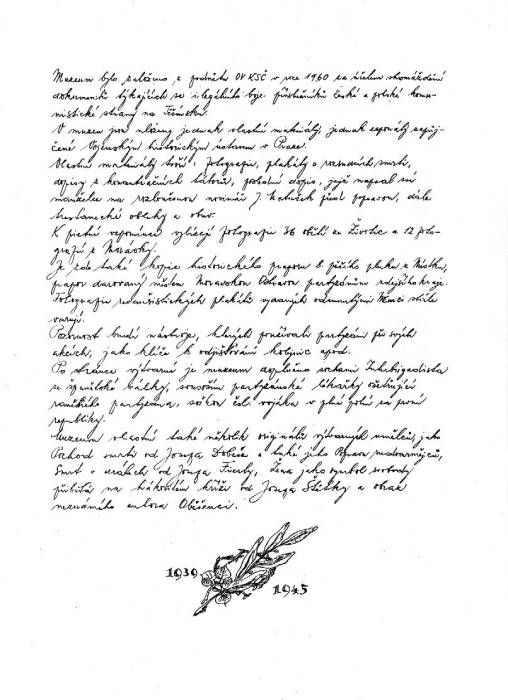 Muzeum bylo založeno z podnětu OV KSČ v roce 1960 za účelem shromáždění
dokumentů týkajících se ilegálního boje příslušníků české a polské komu-
nistické strany na Těšínsku.
V muzeu jsou uloženy jednak vlastní materiály, jednak exponáty zapůj-
čené Vojenským historickým ústavem v Praze.
Vlastní materiály tvoří: fotografie, plakáty o rozsudcích smrti,
dopisy z koncentračních táborů, poslední dopis, jejž napsal své
manželce na rozloučenou novinář J. před popravou, dále
trestanecké obleky a obuv.
K pietní vzpomínce vybízejí fotografie 36 obětí ze Životic a 12 foto-
grafií z
Je zde také kopie historického praporu 8. pěšího pluku z Místku,
prapor darovaný městem Moravskou Ostravou partyzánům zdejšího kraje.
Fotografie německých plakátů vydaných Němci stále
varují.
Pozornost budí nástroje, kterých používali partyzáni při svých
akcích, jako klíče k odjišťování kolejnic apod.
Po stránce výtvarné je muzeum doplněno sochami Interbrigadista
ze španělské války, sousoším partyzánské lékařky ošetřující
raněného partyzána, sochou čsl. vojáka v plné polní za první
republiky.
Muzeum vlastní také několik originálů výtvarných umělců, jako
Pochod smrti od Josefa a také jeho Popravu
Smrt v od Josefa Fierly, Žena jako symbol svobody
přibitá na hákovém kříži od Josefa a obraz
neznámého autora Oběšenci.
1939
1945